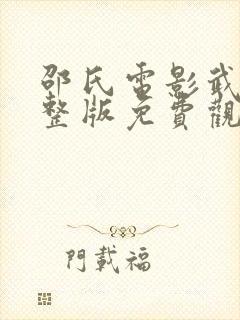 邵氏電影武
整版免費觀
門載福